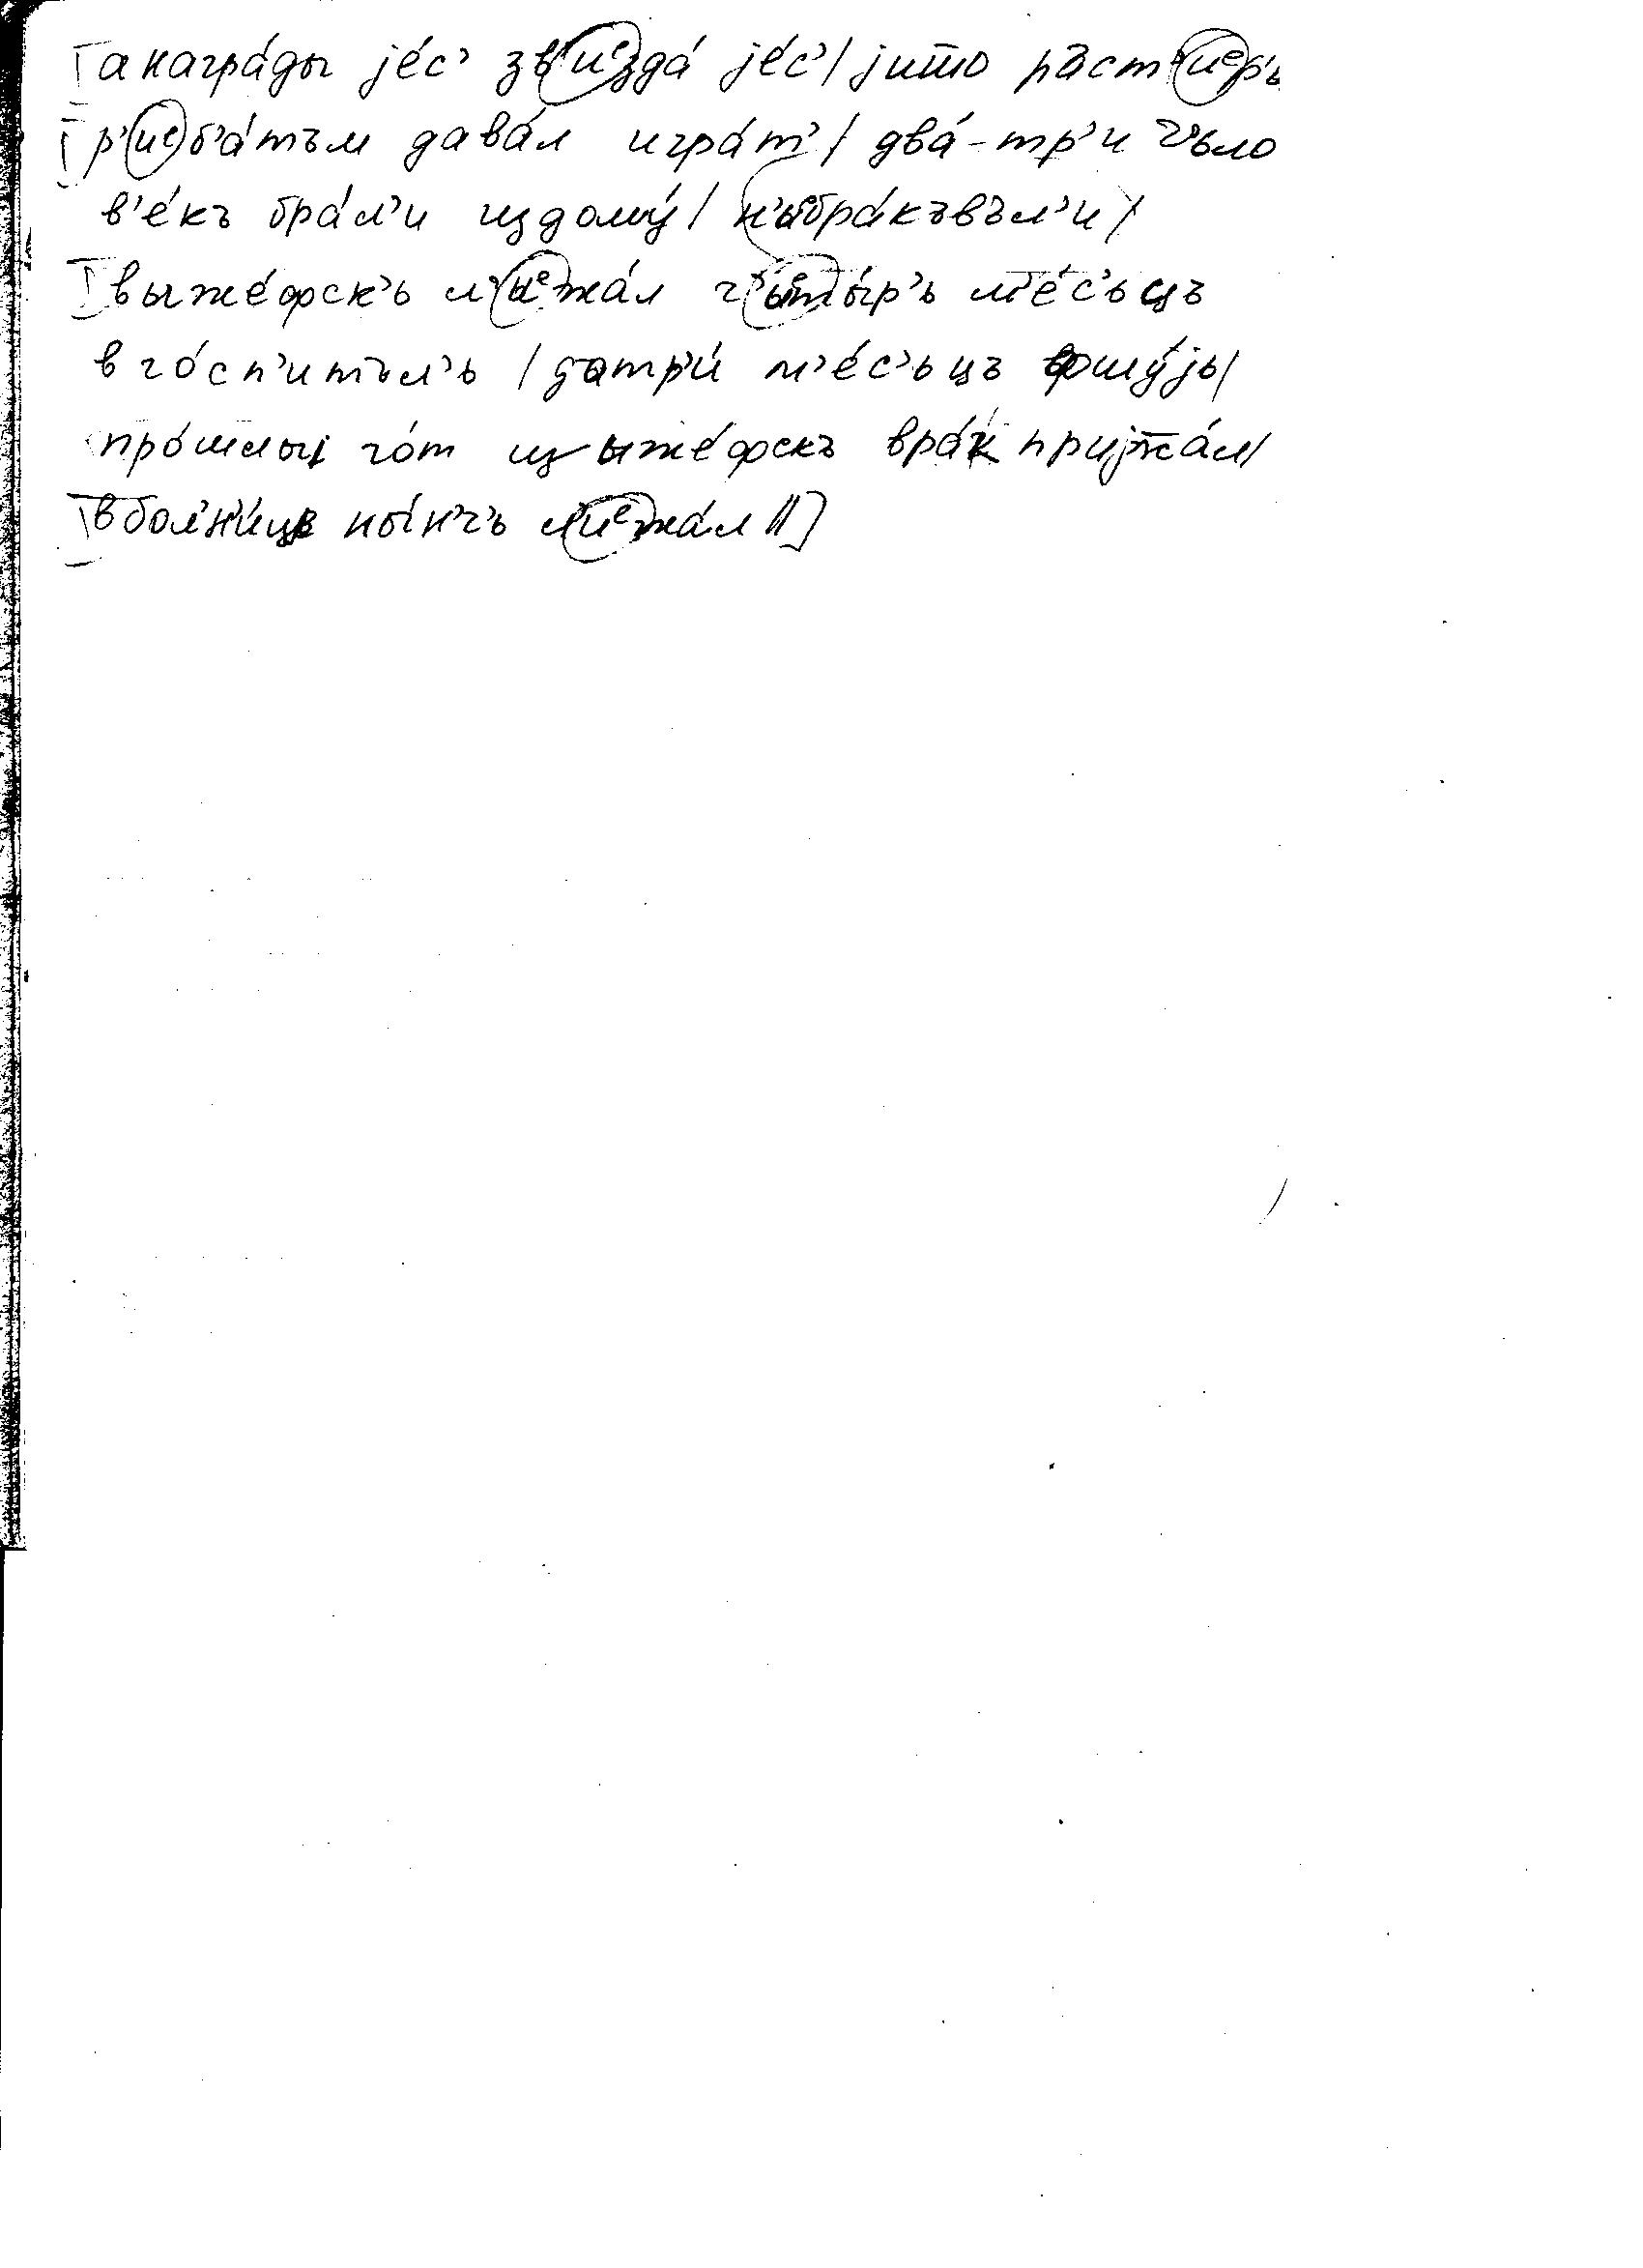 а награ́ды јéс' зв'иᵉзда́ јéс' / јито раст'иᵉр'ь
р'иᵉб'а́тъм дава́л игра́т' / два́-тр'и ч'ьло
в'éкъ бра́л'и издому́ / н'ьбра́къвъл'и /
выжéфск'ь л'иᵉжа́л ч'ьты́р'ь м'éс'ьцъ
в го́сп'итъл'ь / датр'и́ м'éс'ьцъ
про́шлыј го́т изыжéфскъ вра́к пријжа́л /
вбол'н'и́цъ ны́н'ч'ь л'иᵉжа́л //]